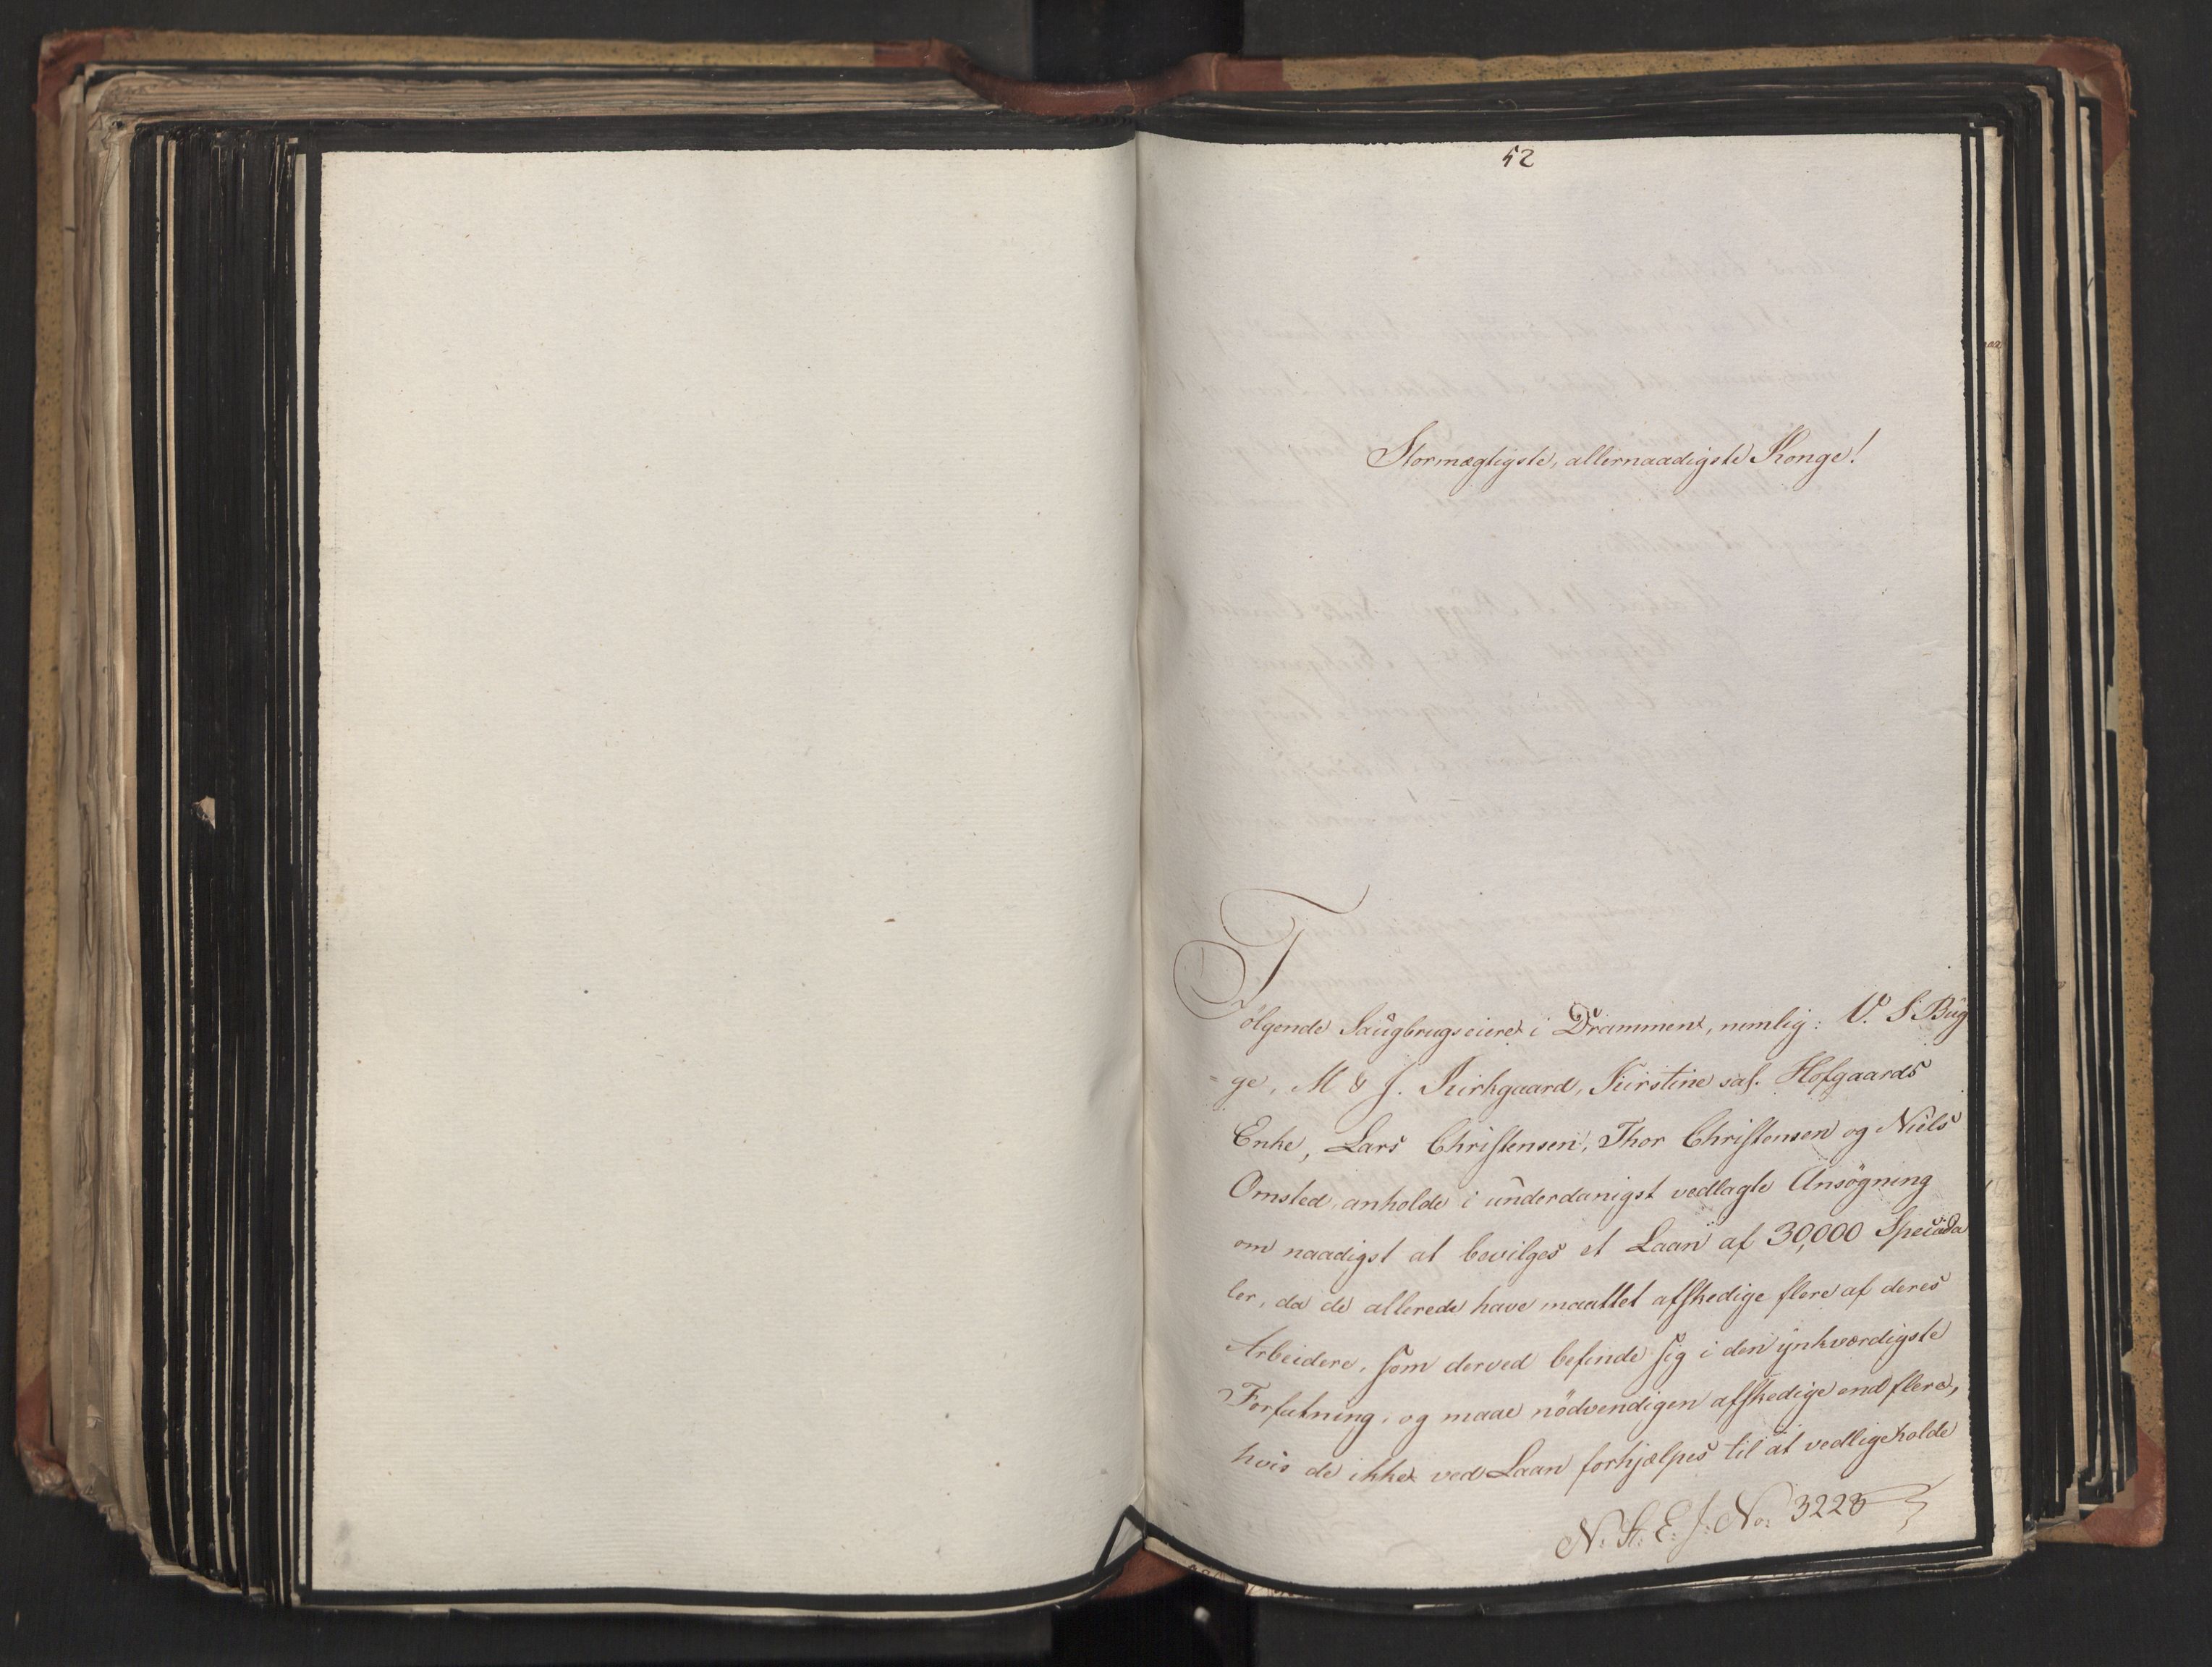 52
Stormægtigste, allernaadigste Konge!
Følgende Saugbrugseiere i Drammen, nemlig: V. S. Bug
ge, M & J. Kirkgaard, Kirstine sal. Hofgaards
Enke, Lars Christensen, Thor Christensen og Niels
Omsted, anholde i underdanigst vedlagte Ansögning
om naadigst at bevilges et Laan af 30,000 Speciada
ler, da de allerede have maattet afskedige flere af deres
Arbeidere, som derved befinde sig i den ynkværdigste
Forfatning, og maae nödvendigen afskedige end flere,
hvis de ikke ved Laan forhjælpes til at vedligeholde
N: St: E: J: No: 3228